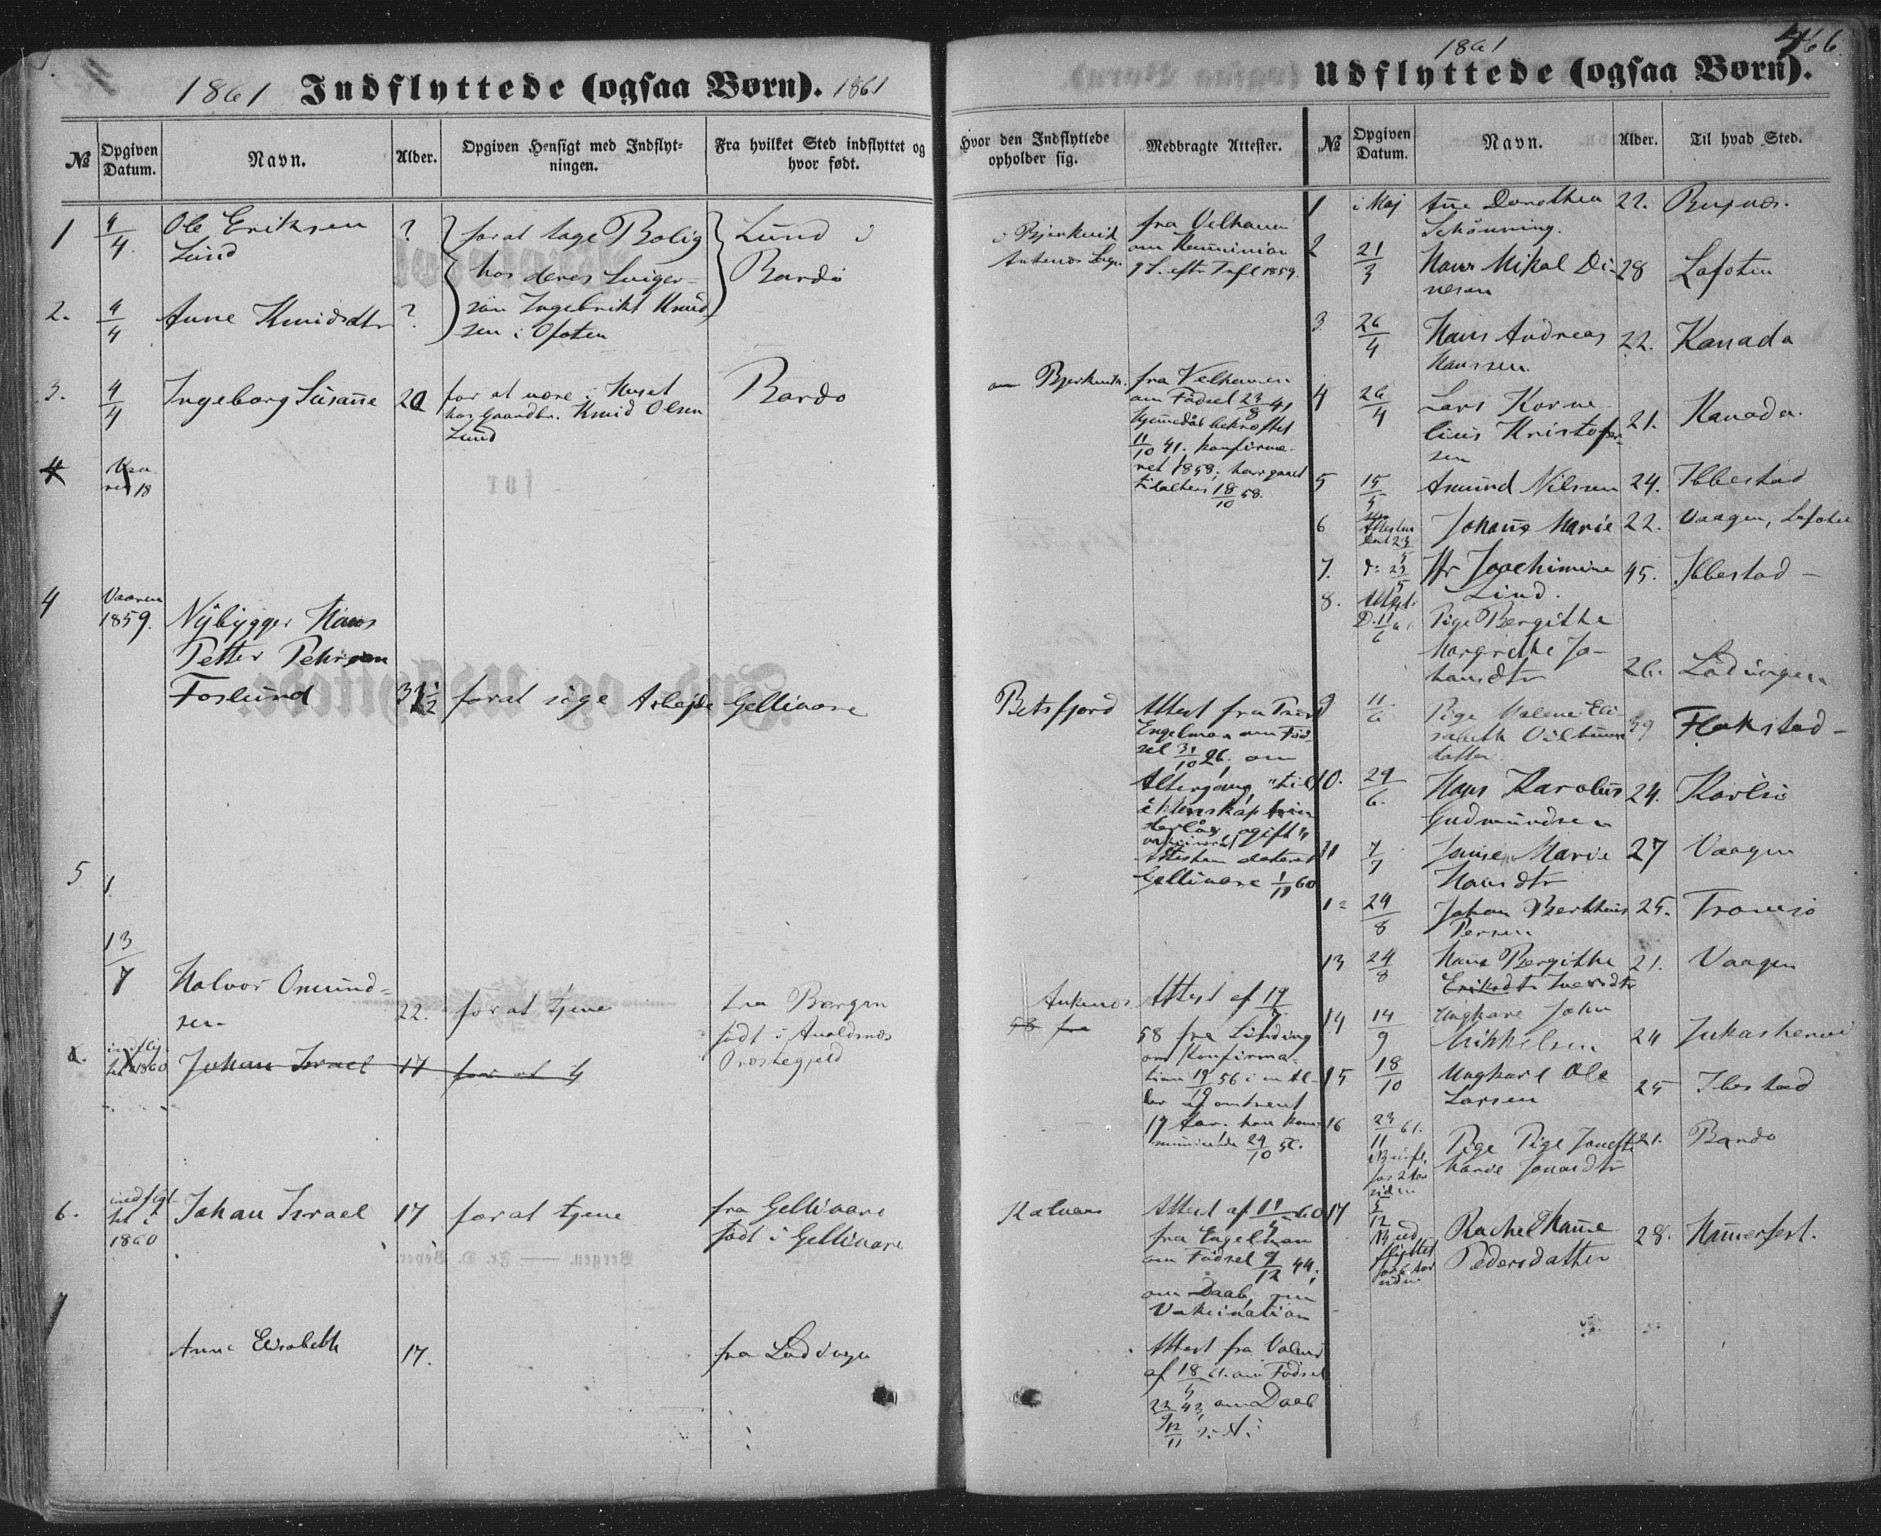 1861 Indflyttede (ogsaa Børn). 1861
№
Opgiven Datum.
Navn.
Alder.
Opgiven Hensigt med Indflyt-
ningen.
Fra hvilket Sted indflyttet og
hvor født.
Hvor den Indflyttede
opholder sig.
Medbragte Attester.
1
4/4.
Ole Eriksen
Lund
?
for at tage Bolig
hos deres Sviger-
sön Ingebrikt Knud
sen i Ofoten
Lund i
Bardo
i Bjerkvik
Ankenæs Sogn
fra
om
2.
4/4
Anne Knudsdtr
?
3.
4/4
Ingeborg Susanne
20
for at være i Huset
hos Gaardbr. Knud Olsen
Lund
Bardo
Bjerkvik.
om Födsel 23/8 41
Hjemedåb bekræftet
11/10 41. konfirme-
ret 1858. har gaaet
til alters 18/10 58.
4
4
Vaaren
1859.
Nybygger Hans
Petter Pehrson
Foslund
31½
for at söge Arbejde
Gellivare
Beisfjord
Attest fra
Engelmark om Föd-
sel 31/10 26. om
Altergang, "til
ägtenskap hin-
derlös, ogift"
vaksineret
Attesten dateret
Gellivare 1/11 60
5
13/7
Halvor Omund-
sen
22.
for at tjene
fra Bergen
födt i Avaldsnæs
Præstegjeld
Ankenes
58 fra
Attest af 19/7
58 fra
om Konfirma-
tion 19/10 56 i en Al-
der af omtrent
17 Aar. har kom-
municeret 24/10 58.
6.
indfly
tet 1860
Johan Israel
17
for at tj
6.
indflyt-
tet i
1860
Johan Israel
17
for at tjene
fra Gellivare
födt i Gellivare
Attest af 11/5 60
fra Engelman
om Födsel 9/12 44;
om Daab, om
Vakcination
7
Anne Elisabeth
17.
fra Lödingen
Attest fra
af 18/5 61. om Födsel
23/9 43, om Daab
12/11
1861
466
Udflyttede (ogsaa Børn).
№
Opgiven Datum.
Navn.
Alder.
Til hvad Sted.
1
i Maj
Ane Dorothea
Schönning.
22.
Buxnæs.
2
21/3
Hans Mikal Di-
nesen
28
Lofoten
3
26/4
Hans Andreas
Hanssen.
22.
Kanada
4
26/4
Lars Korne-
lius Kristofer-
sen
21.
Kanada.
5
15/5
Amund Nilsen
24.
Ibbestad
6
Attesten
dat 23/5
Johanne Marie
22.
Vaagen, Lofoten
7.
d: 23/5
Fr Joachimine
Lind.
45.
Ibbestad
8.
D. 11/6
Pige Bergithe
Margrethe Jo-
hansdtr
26.
Lödingen
9
11/6
Pige Malene Eli-
sabeth Vilhelms
datter.
39
Flakstad
10.
29/6.
Hans Karolus
Gudmundsen
24.
Karlsö
11
7/7
Janne Marie
Hansdtr
27
Vaagen
12
24/8
Johan Berthius
Persen
25.
Tromsö
13
24/8
Hans Bergithe
Eriksdtr Iversdtr
21.
Vaagen
14
14/9
Ungkarl John
Mikkelsen
24
Jukashervi
15
18/10
Ungkarl Ole
Larsen
25
Ibestad
16
23/11 61.
Pige Pige
Marie Jonasdtr
21.
Bardo
17
5/12
Ud
flyttet
for 6 Aar
siden
Rachel Hanne
Pedersdatter
28.
Hammerfest.